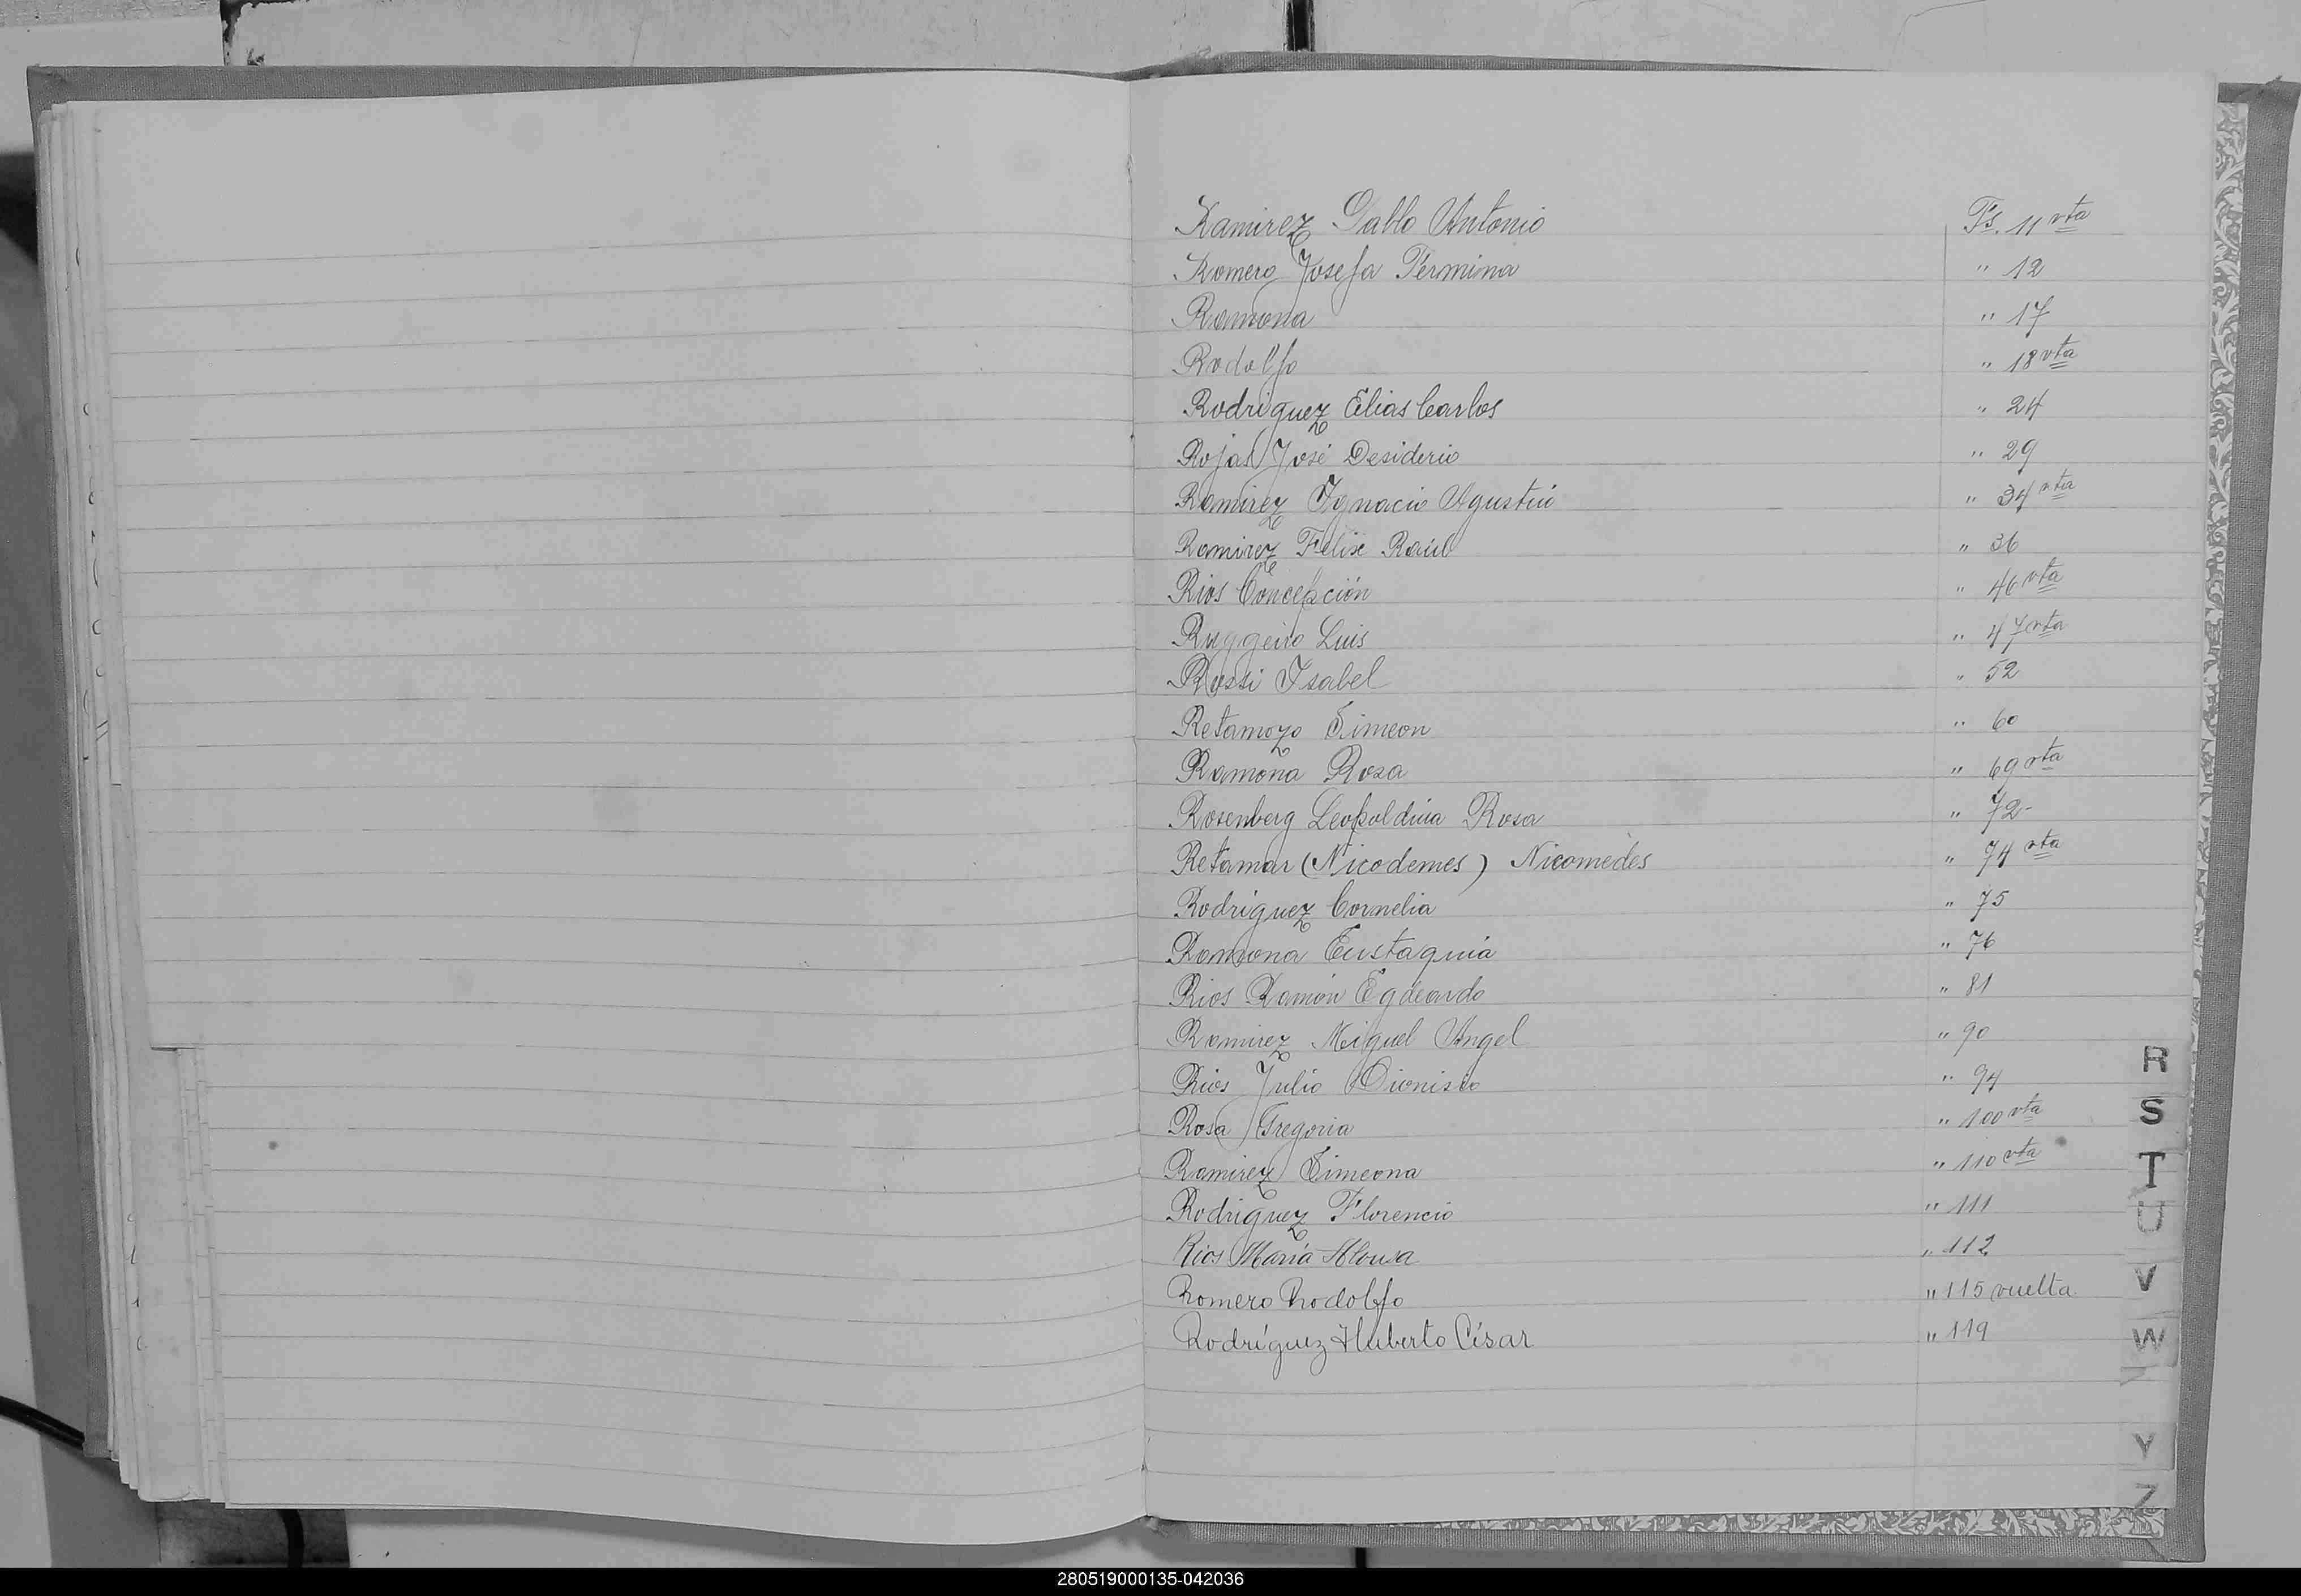 Ramirez Pablo Antonio Fs. 11 vta
Romero Josefa Fermina " 12
Ramona " 17
Rodolfo " 18 vta
Rodriguez Elias Carlos " 24
Rojas José Desiderio " 29
Ramirez Ignacio Agustin " 34 vta
Ramirez Felix Raúl " 36
Rios Concepción " 46 vta
Ruggeiro Luis " 47 vta
Rossi Isabel " 52
Retamozo Simeon " 60
Ramona Rosa " 69 vta
Rosenberg Leopoldina Rosa " 72-
Retamar (Nicodemes) Nicomedes " 74 vta
Rodriguez Cornelia " 75
Ramona Eustaquia " 76
Rios Ramón Egdeardo " 81
Ramirez Miguel Angel " 90
Rios Julio Dionisio " 94
Rosa Gregoria " 100 vta
Ramirez Simeona " 110 vta
Rodriguez Florencio " 111
Rios María " 112
Romero Rodolfo " 115 vuelta
Rodríguez Huberto César " 119
R
S
T
U
V
W
Y
Z
280519000135-042036